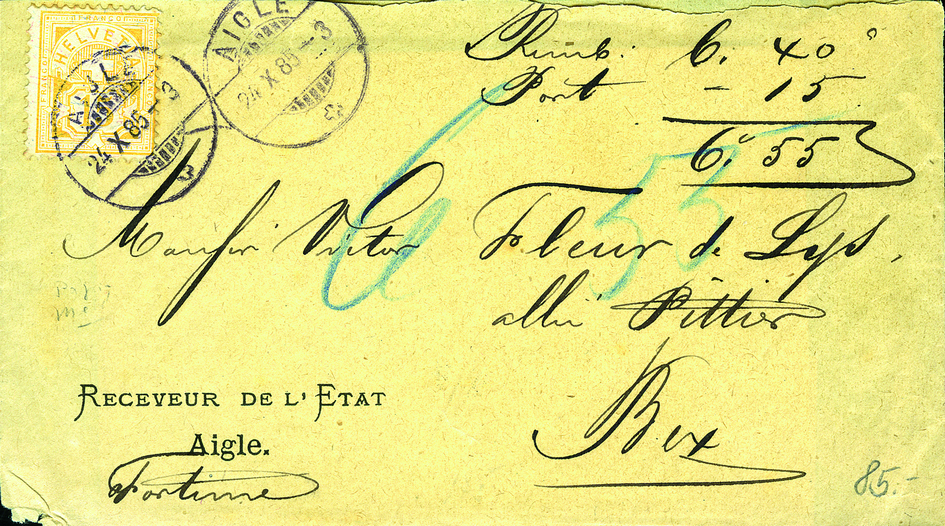 FRANCO
HELVETIA
15
AIGLE
24 X 85 – 3
AIGLE
24 X 85 – 3
Rimb: 6. 40
Port – 15
6. 55
6 55
Monsieur Victor Fleur de Lys,
allié Pittier
Bex
RECEVEUR DE L'ETAT
Aigle.
85.-